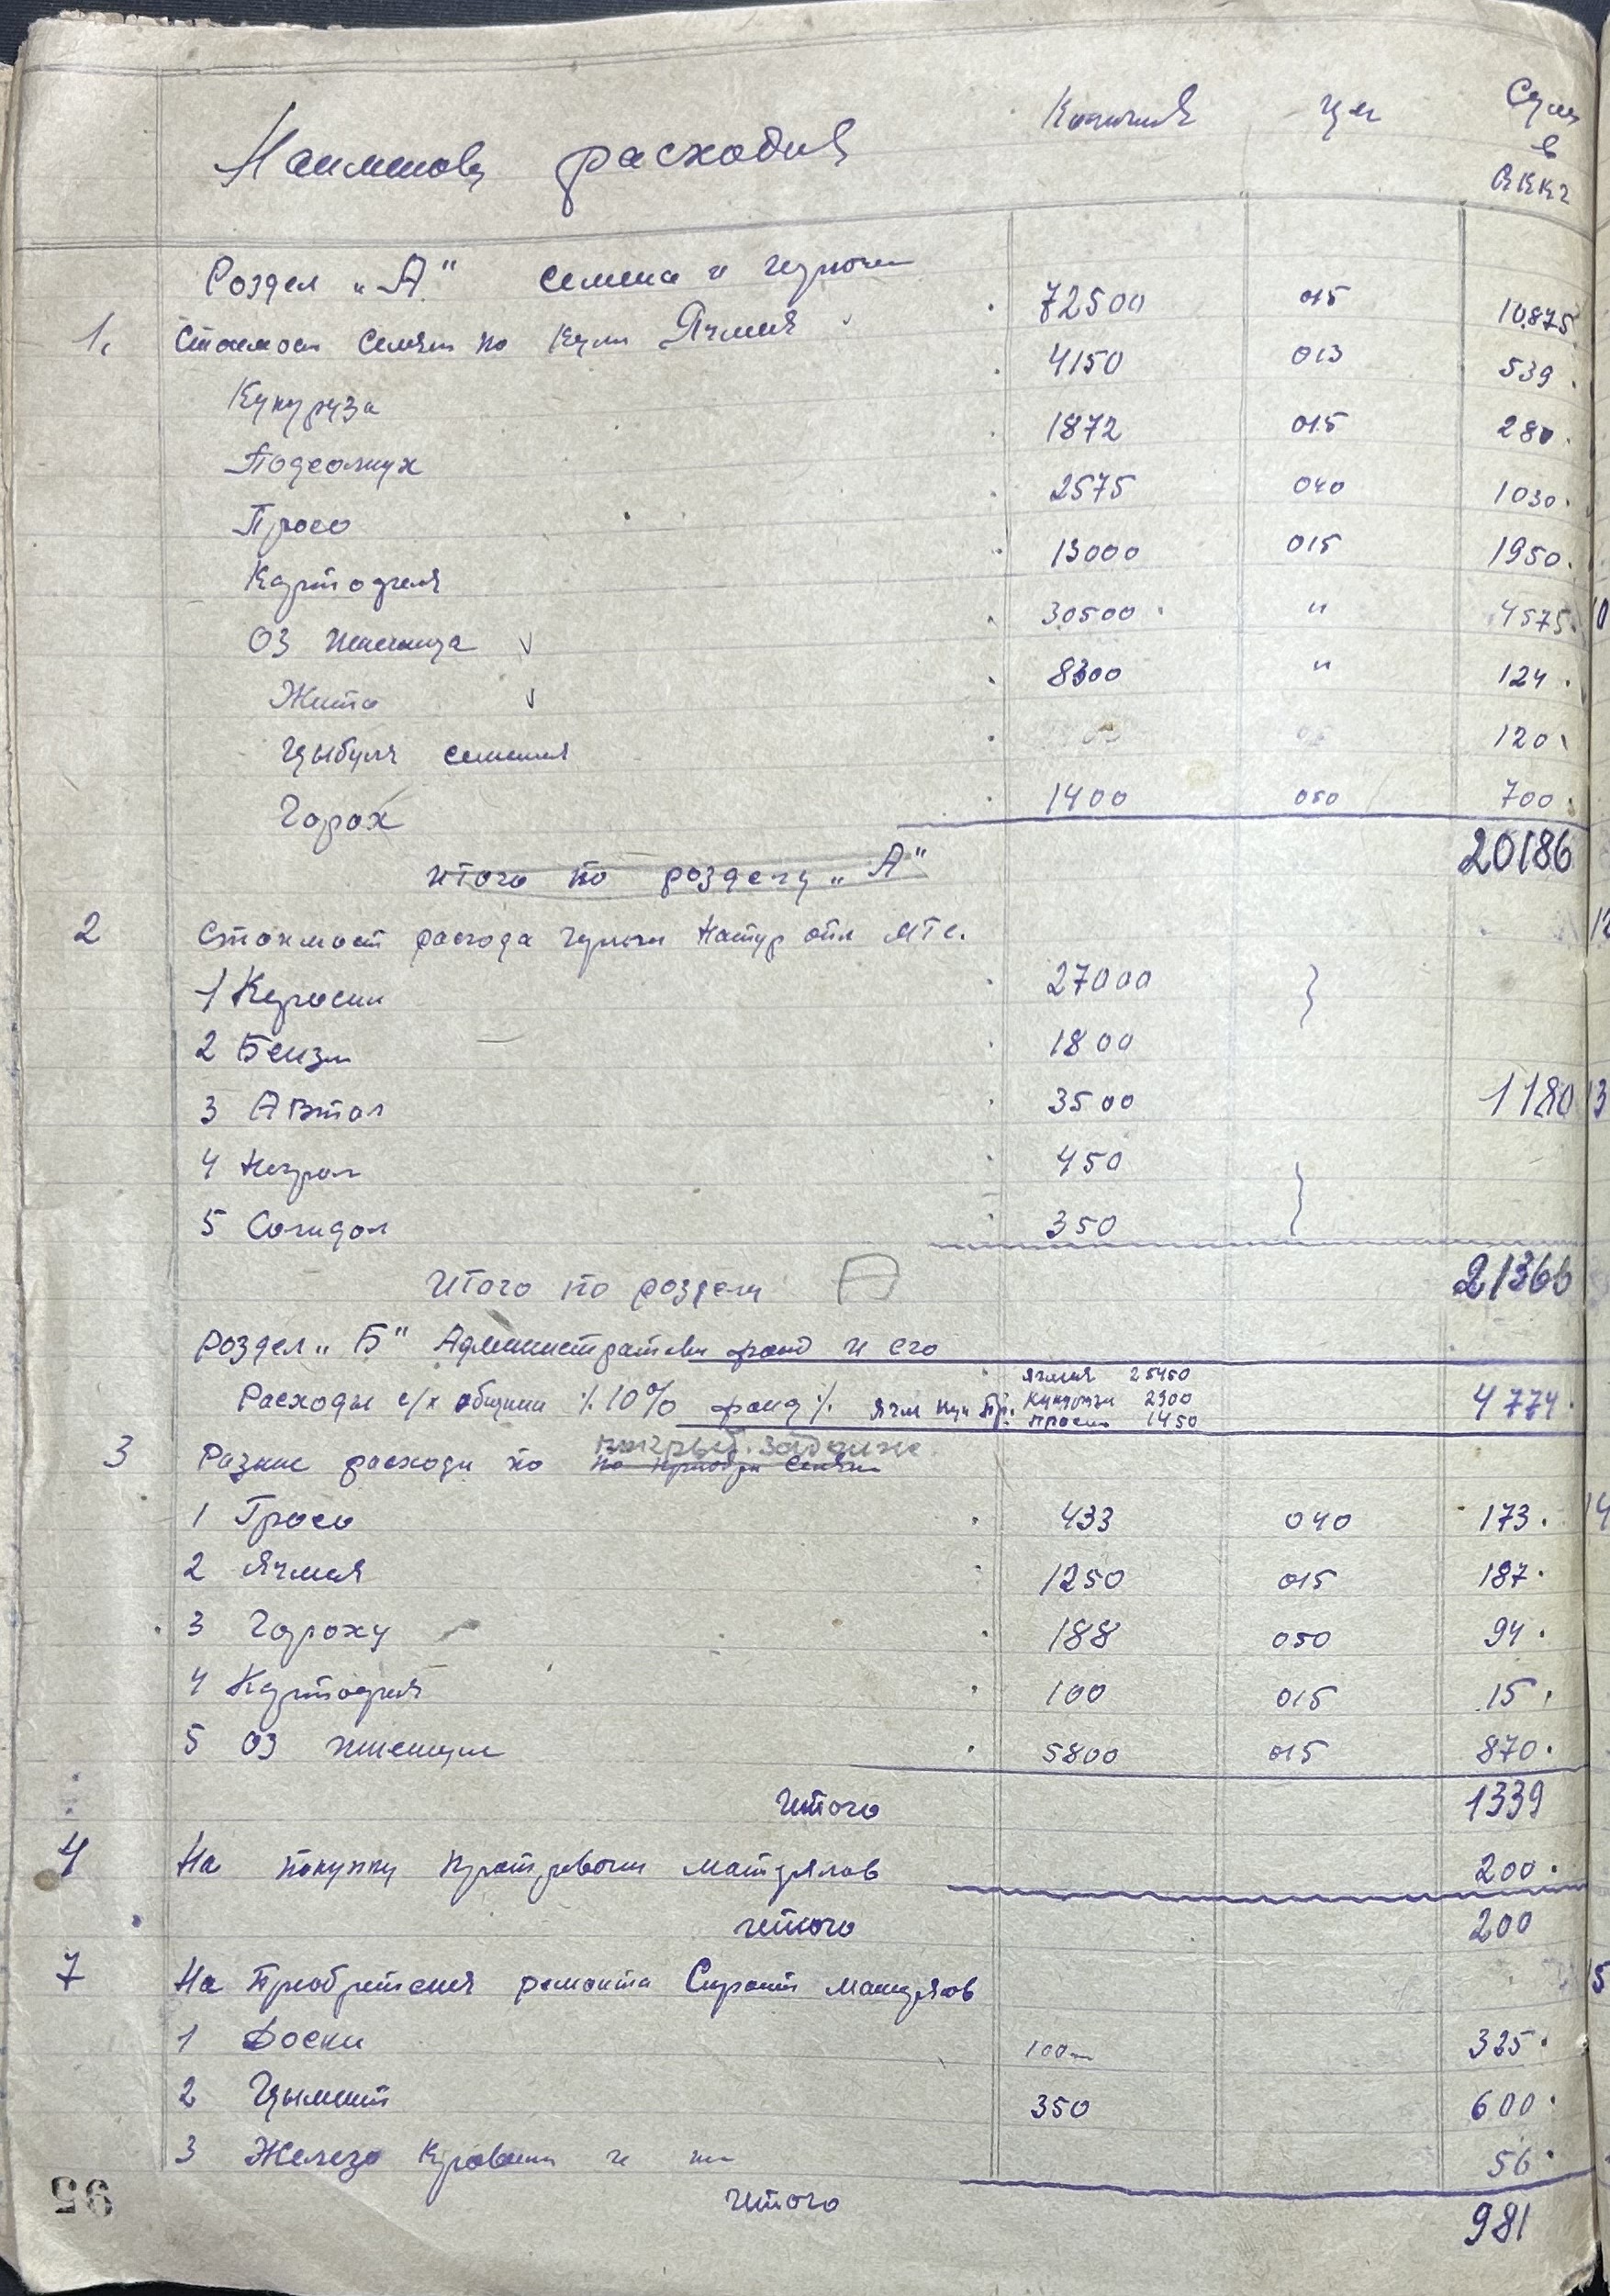 Наименов расходив Количия Цен Сум в ᲠККг
Роздел „А" семена и горюче
1. Стоимост Семян по Кули Ячмия 72500 015 10875
Кукуруза 4150 013 539
Подсолнух 1872 015 280
Просо 2575 040 1030
Картофеля 13000 015 1950
ОЗ пшеница 30500 " 4575
Жита 8300 " 124
Цыбуля семення 120
Горох 1400 050 700
Итого по розделу „А" 20186
2 Стоимост расхода горюче Натур опл МТС.
1 Керосин 27000
2 Бензин 1800
3 Автол 3500 1180
4 Нигрол 450
5 Солидол 350
Итого по роздели А 21366
роздел „Б" Административн фонд и его
Ячмия 25450
Расходы с/х общины ٪ 10% фонд ٪ Ячм кук Пр. Кукурузи 2900 4774
Просо 1450
3 Разние расходи по
1 Просо 433 040 173
2 Ячмия 1250 015 187
3 Гороху 188 050 94
4 Картофия 100 015 15
5 ОЗ пшеници 5800 015 870
Итого 1339
4 На покупку матриялов 200
Итого 200
7 На Приобритения ремонта Строит матриялов
1 Доски 100 325
2 Цымент 350 600
3 Железо Кровени и 56
Итого 981
95